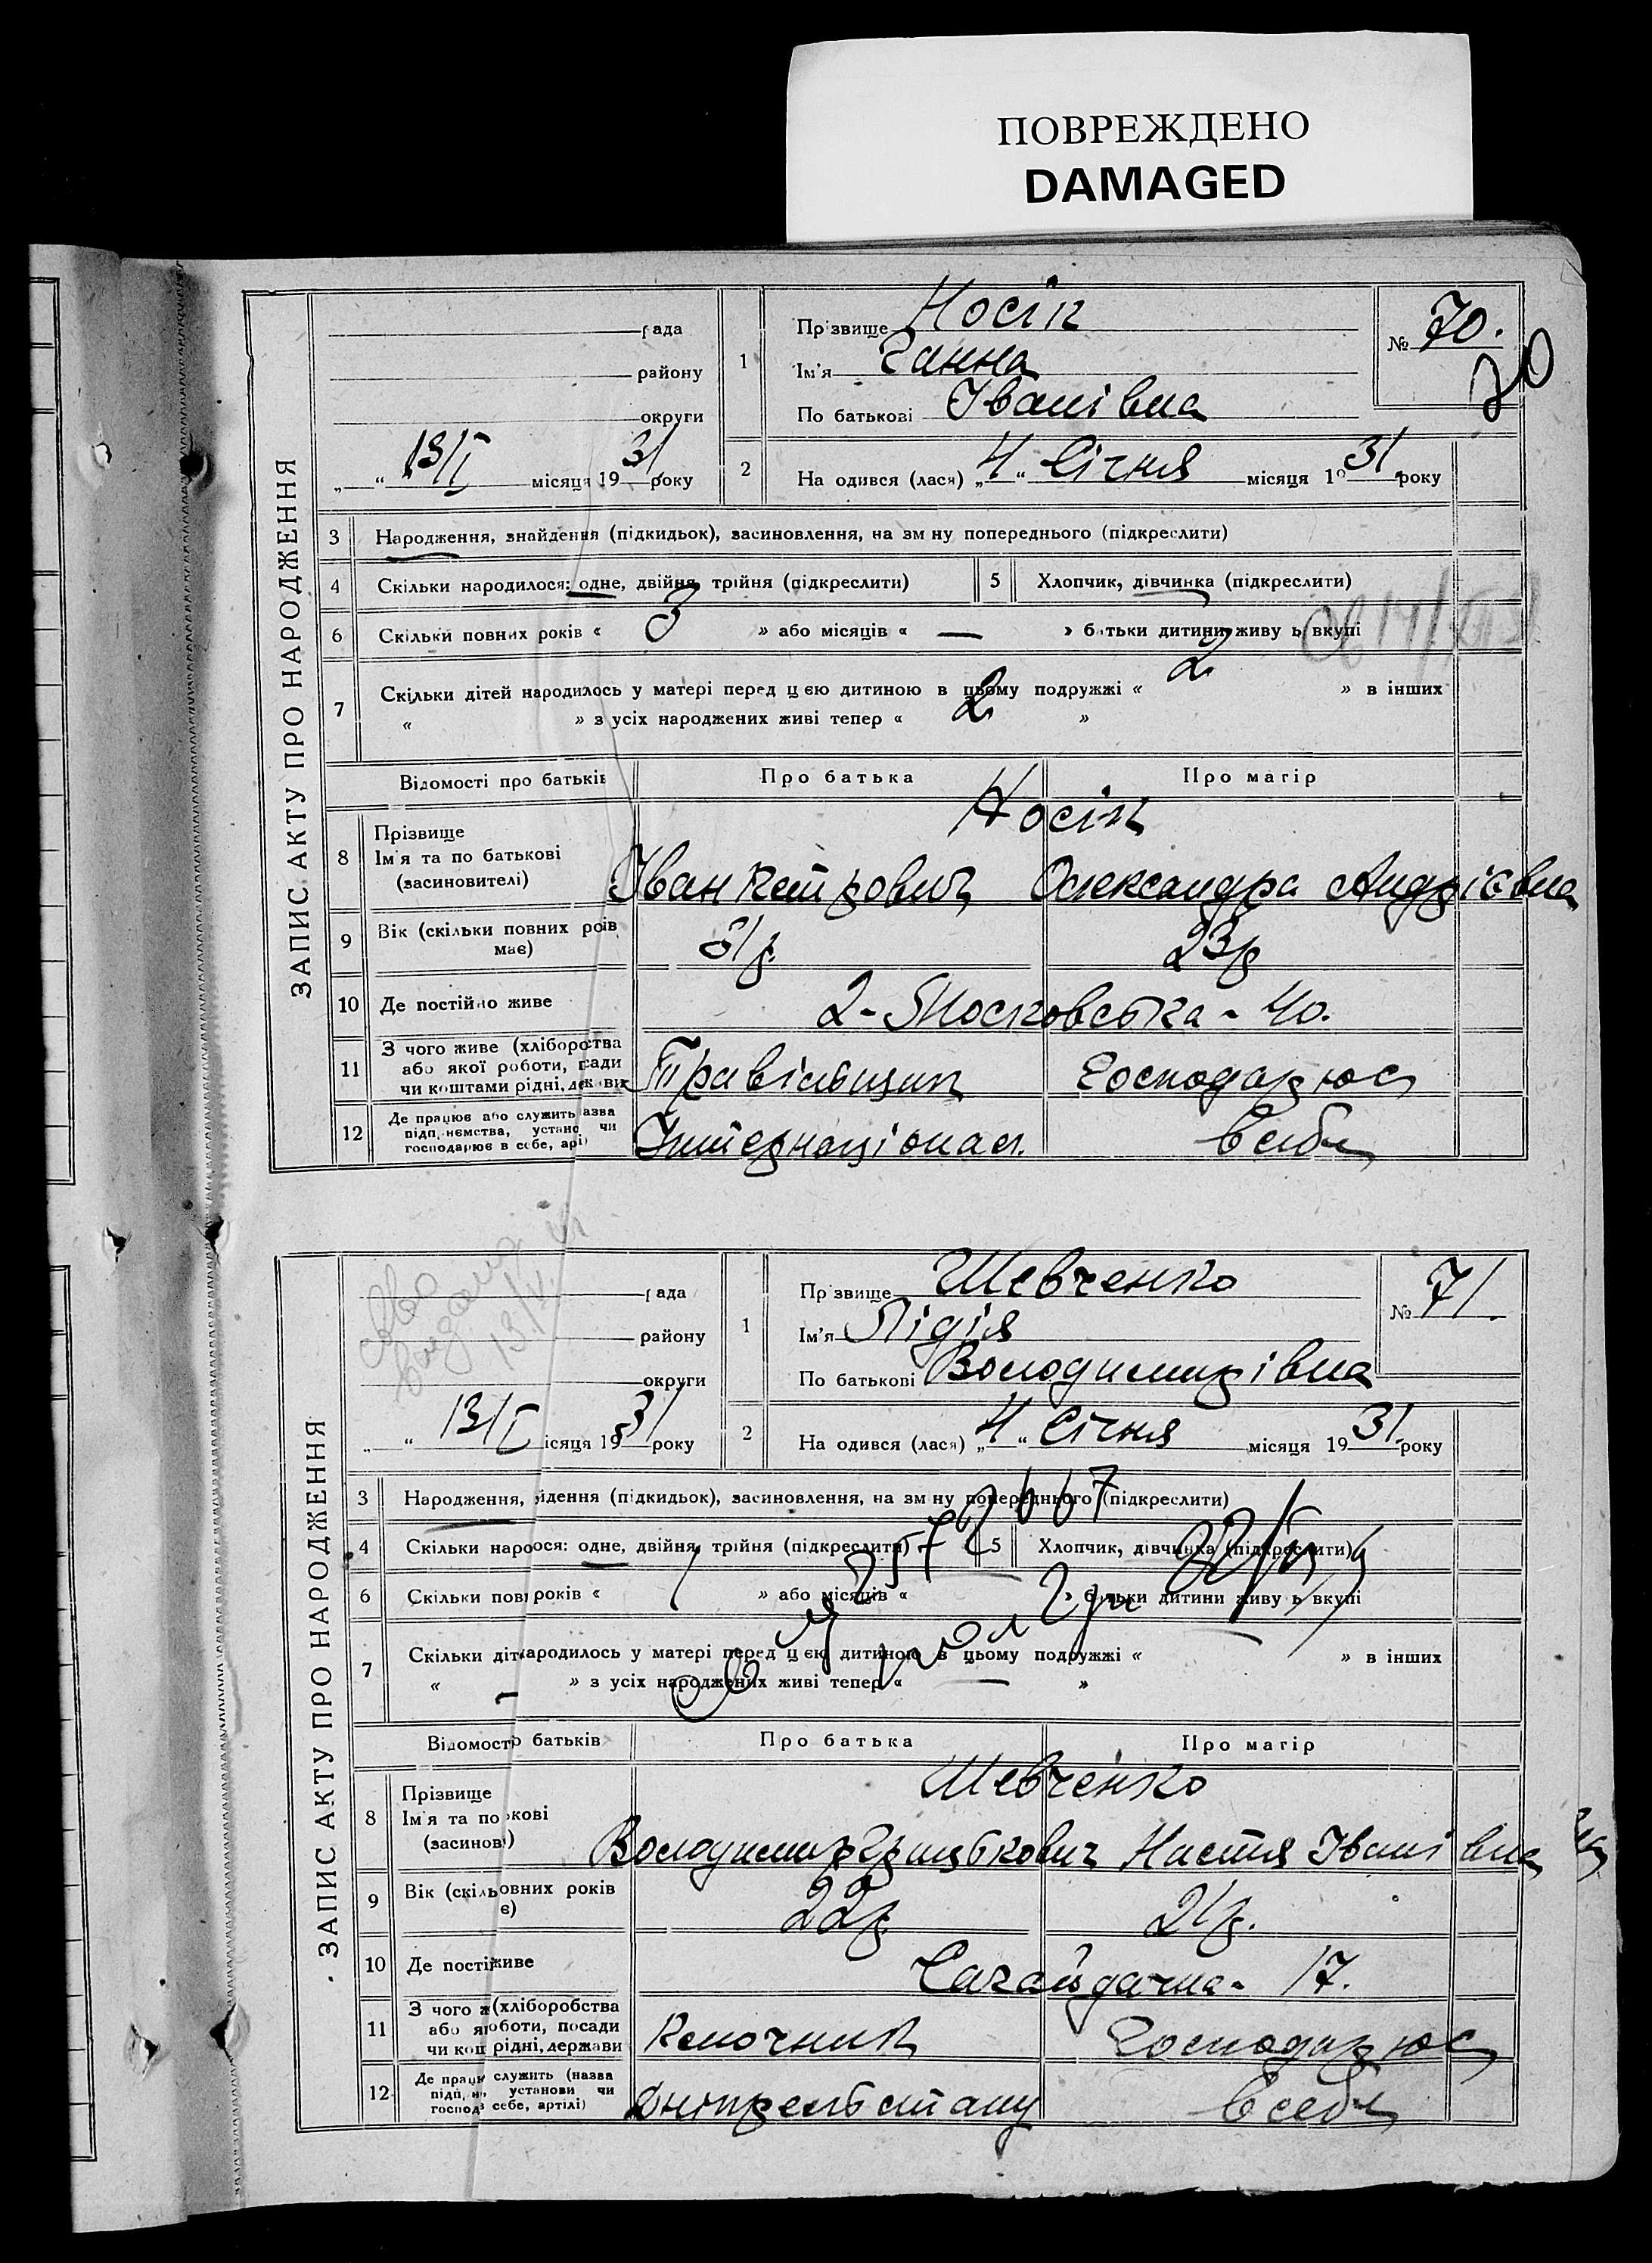 ПОВРЕЖДЕНО
DAMAGED
ЗАПИС АКТУ ПРО НАРОДЖЕННЯ
рада
району
округи
„ “ 13/I місяця 1931 року
1
Прізвище Носік
Ім'я Ганна
По батькові Іванівна
№ 70.
70
2
На одився (лася) „4“ Січня місяця 1931 року
3 Народження, знайдення (підкидьок), засиновлення, на зм ну попереднього (підкреслити)
4 Скільки народилося: одне, двійня, трійня (підкреслити)
5 Хлопчик, дівчинка (підкреслити)
6 Скільки повних років « 3 » або місяців « — » батьки дитини живу ь вкупі
7 Скільки дітей народилось у матері перед цією дитиною в цьому подружжі « 2 » в інших
« » з усіх народжених живі тепер « 2 »
Відомості про батьків Про батька Про матір
8 Прізвище
Ім'я та по батькові
(засиновителі)
Носік
Іван Петрович Олександра Андрієвна
9 Вік (скільки повних років
має)
31 р. 23 р
10 Де постійно живе 2-Московська - 40.
11 З чого живе (хліборобства
або якої роботи, посади
чи коштами рідні, держави
Правільщик Господарює
12 Де працює або служить (назва
підприємства, установи чи
господарює в себе, артілі)
Інтернаціонал. в себе
ЗАПИС АКТУ ПРО НАРОДЖЕННЯ
рада
району
округи
13/I місяця 1931 року
1
Прізвище Шевченко
Ім'я Лідія
По батькові Володимирівна
№ 71.
2
На одився (лася) „4“ Січня місяця 1931. року
3 Народження, йдення (підкидьок), засиновлення, на зм ну попереднього (підкреслити)
4 Скільки нароося: одне, двійня, трійня (підкреслити)
5 Хлопчик, дівчинка (підкреслити)
6 Скільки пов років « 1 » або місяців « — » батьки дитини живу ь вкупі
7 Скільки дітародилось у матері перед цією дитиною в цьому подружжі « — » в інших
« — » з усіх народжених живі тепер « — »
Відомості батьків Про батька Про матір
8 Прізвище
Ім'я та по кові
(засинов)
Шевченко
Володимир Грицькович Настя Іванівна
9 Вік (скільовних років
є)
22 р. 21 р.
10 Де постіживе Сагайдачна - 17.
11 З чого ж(хліборобства
або яроботи, посади
чи кош рідні, держави
Клепочник Господарює
12 Де працю служить (назва
підп. установи чи
господ себе, артілі)
Дніпрельстану в себе